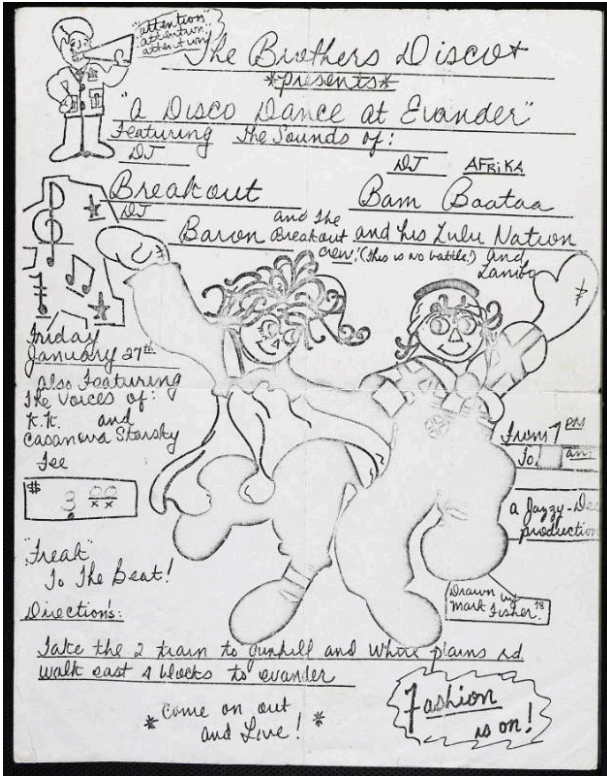 "attention"
attention
attention!
The Brothers Disco
*presents*
"A Disco Dance at Evander"
Featuring The Sounds of:
DJ
Breakout
DJ
Baron
and the
Breakout
crew,
DJ AFRIKA
Bam Baataa
and his Zulu Nation
(this is no battle!) and
Friday
January 27th
also Featuring
The Voices of:
K.K. and
Casanova Starsky
Fee
$ 3.00
"Freak"
To The Beat!
From 7 pm
To am
a Jazzy-Dee
production
Drawn by
Mark Fisher 78
Direction's:
Take the 2 train to gunhill and white plains rd
walk east 4 blocks to evander
* Come on out
and Live! *
Fashion
is on!